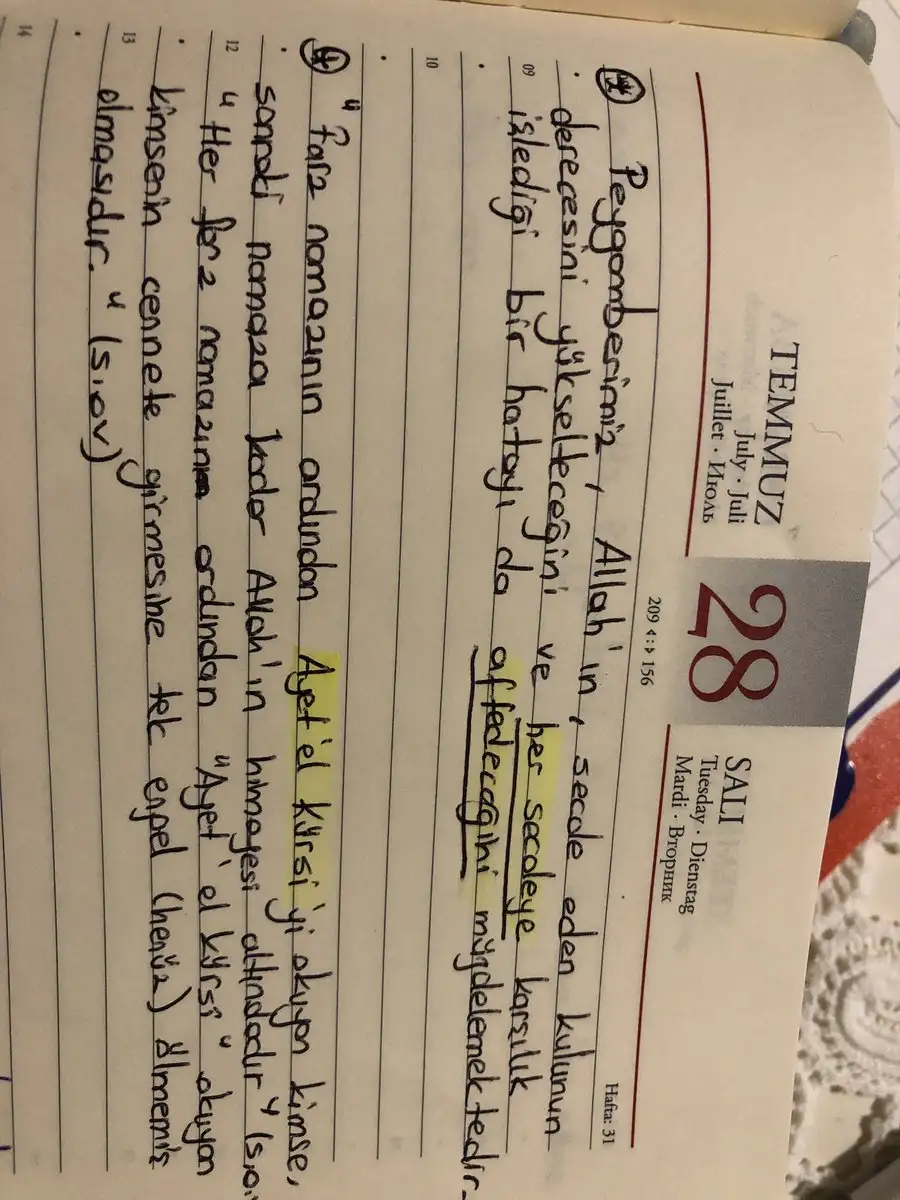 TEMMUZ
July · Juli
Juillet · Июль
28
SALI
Tuesday · Dienstag
Mardi · Вторник
209 156
Hafta: 31
Peygamberimiz, Allah'ın, secde eden kulunun
derecesini yükselteceğini ve her secdeye karşılık
09 işlediği bir hatayı da affedeceğini müjdelemektedir.
10
"Farz namazının ardından Ayet'el kürsi'yi okuyan kimse,
sonraki namaza kadar Allah'ın himayesi altındadır" (s.a.
12 "Her farz namazının ardından "Ayet'el kürsi" okuyan
kimsenin cennete girmesine tek engel (henüz) ölmemiş
13 olmasıdır." (s.av)
14